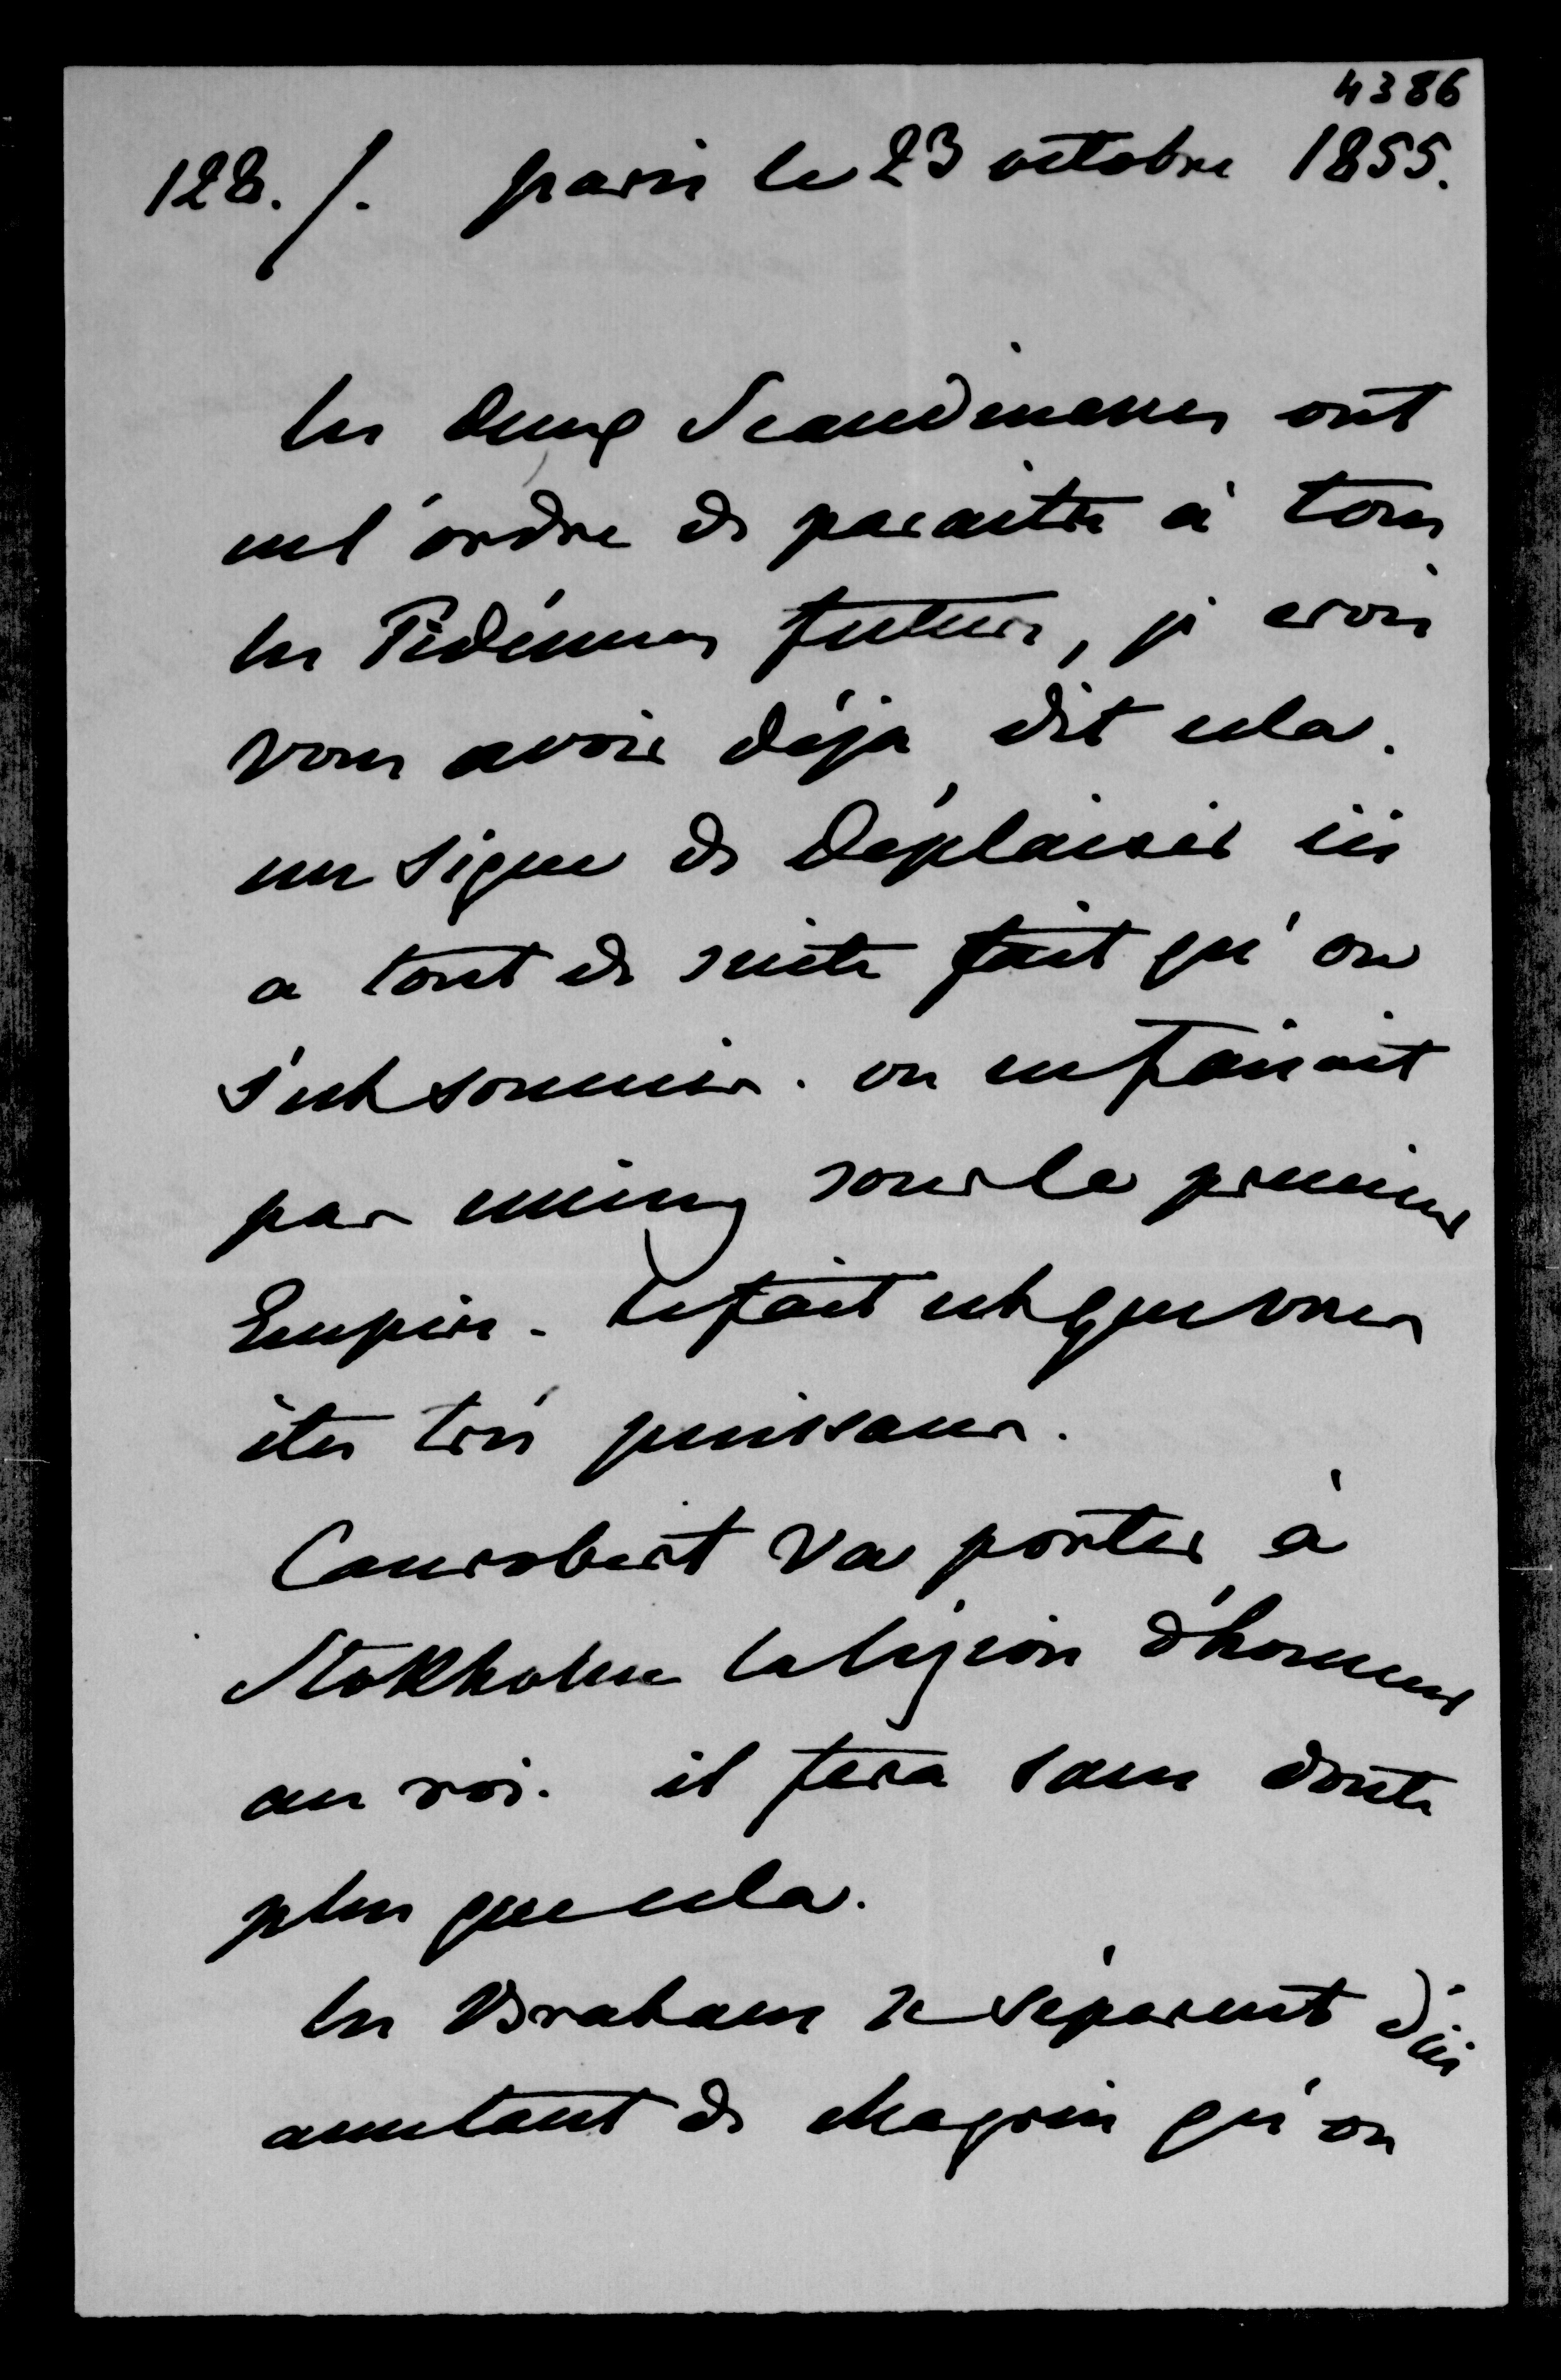 4386
128. /. paris le 23 octobre 1855.
les deux Scandinaves ont
eu l'ordre de paraitre à tous
les Tedéums futurs, je crois
vous avoir déjà dit cela.
un signe de déplaisir ici
a tout de suite fait qu'on
s'est soumis. on ne faisait
pas mieux sous le premier
Empire. le fait est que vous
êtes très puissans.
Canrobert va porter à
Stokholm la légion d'honneur
au roi. il fera sans doute
plus que cela.
les Brabans se séparent d'ici
autant de chagrin qu'on